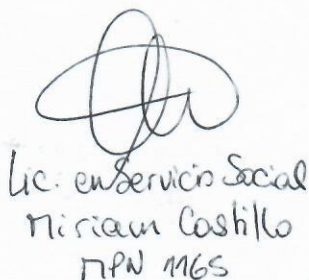 Lic. en Servicio Social
Miriam Castillo
MPN 1165